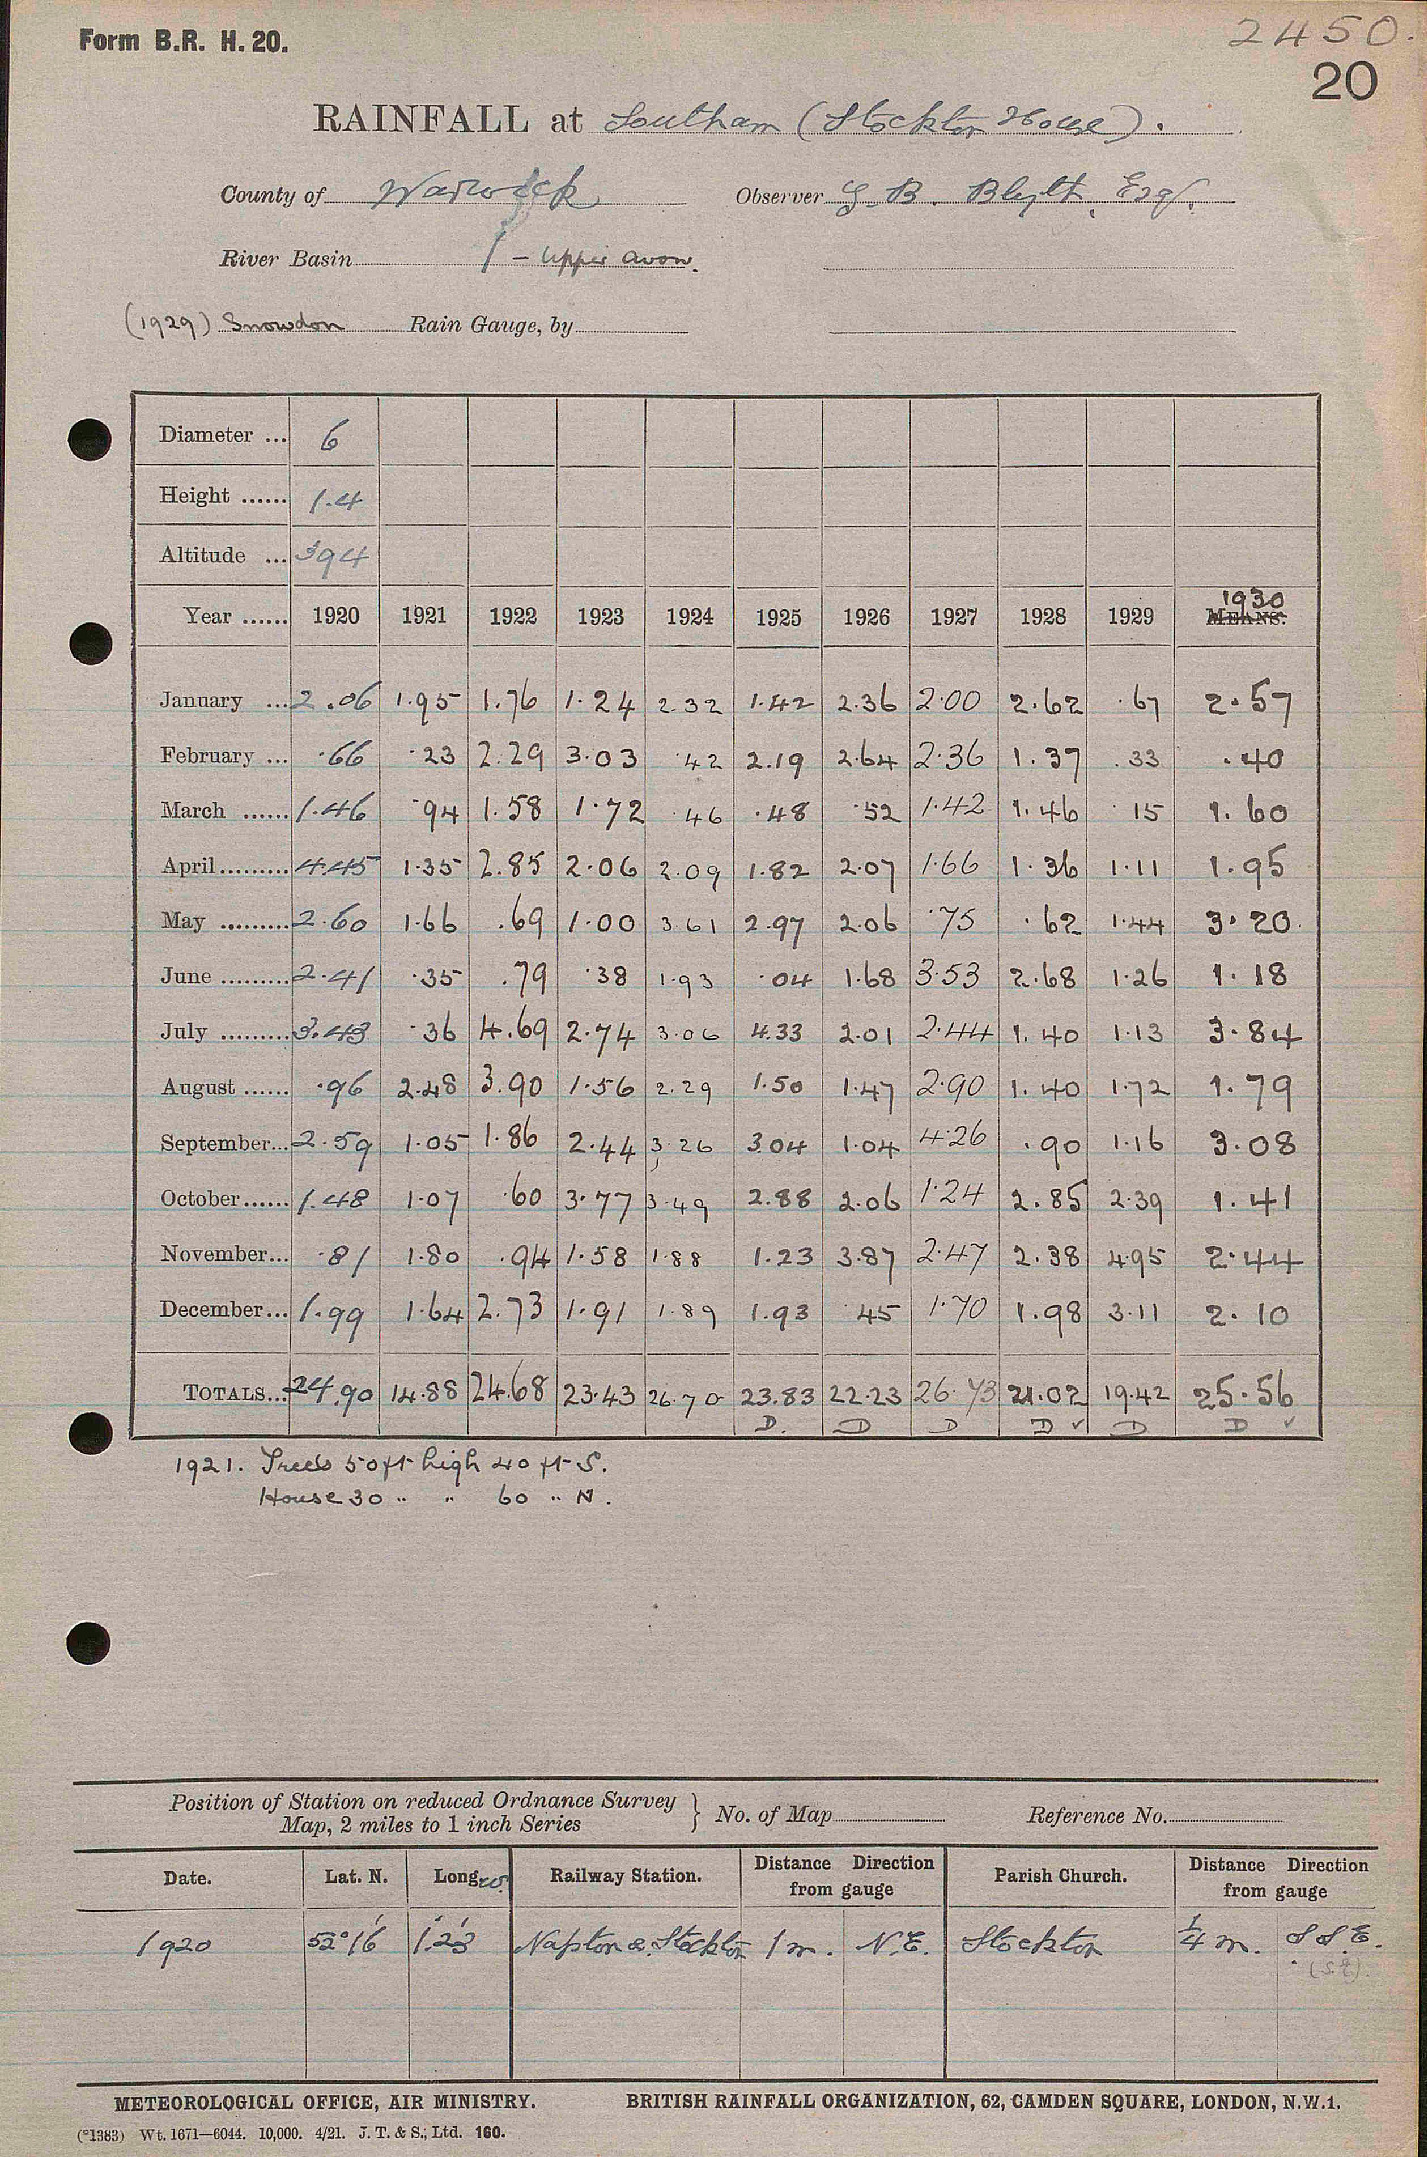 Form B.R. H. 20.
2450.
20
RAINFALL at Southam (Stockton House).
County of Warwick Observer G. B. Blyth, Esq.
River Basin 1 - Upper Avon.
(1929) Snowdon Rain Gauge, by
Diameter ... 6
Height ...... 1.4
Altitude ... 394
Year ...... 1920 1921 1922 1923 1924 1925 1926 1927 1928 1929 MEANS. 1930
January ... 2.06 1.95 1.76 1.24 2.32 1.42 2.36 2.00 2.62 .67 2.57
February ... .66 .23 2.29 3.03 .42 2.19 2.64 2.36 1.37 .33 .40
March ...... 1.46 .94 1.58 1.72 .46 .48 .52 1.42 1.46 .15 1.60
April ......... 4.45 1.35 2.85 2.06 2.09 1.82 2.07 1.66 1.36 1.11 1.95
May ......... 2.60 1.66 .69 1.00 3.61 2.97 2.06 .75 .62 1.44 3.20
June ......... 2.41 .35 .79 .38 1.93 .04 1.68 3.53 2.68 1.26 1.18
July ......... 3.43 .36 4.69 2.74 3.06 4.33 2.01 2.44 1.40 1.13 3.84
August ...... .96 2.48 3.90 1.56 2.29 1.50 1.47 2.90 1.40 1.72 1.79
September... 2.59 1.05 1.86 2.44 3.26 3.04 1.04 4.26 .90 1.16 3.08
October...... 1.48 1.07 .60 3.77 3.49 2.88 2.06 1.24 2.85 2.39 1.41
November... .81 1.80 .94 1.58 1.88 1.23 3.87 2.47 2.38 4.95 2.44
December... 1.99 1.64 2.73 1.91 1.89 1.93 .45 1.70 1.98 3.11 2.10
TOTALS... 24.90 14.88 24.68 23.43 26.70 23.83 22.23 26.73 21.02 19.42 25.56
D. D D D ✓ D D ✓
1921. Trees 50 ft high 40 ft S.
House 30 " " 60 " N.
Position of Station on reduced Ordnance Survey
Map, 2 miles to 1 inch Series } No. of Map Reference No.
Date. Lat. N. Long. W. Railway Station. Distance Direction from gauge Parish Church. Distance Direction from gauge
1920 52° 16' 1° 23' Napton & Stockton 1 m. N.E. Stockton 1/4 m. S S E.
(S.E).
METEOROLOGICAL OFFICE, AIR MINISTRY. BRITISH RAINFALL ORGANIZATION, 62, CAMDEN SQUARE, LONDON, N.W.1.
(*1383) Wt. 1671—6044. 10,000. 4/21. J. T. & S., Ltd. 160.